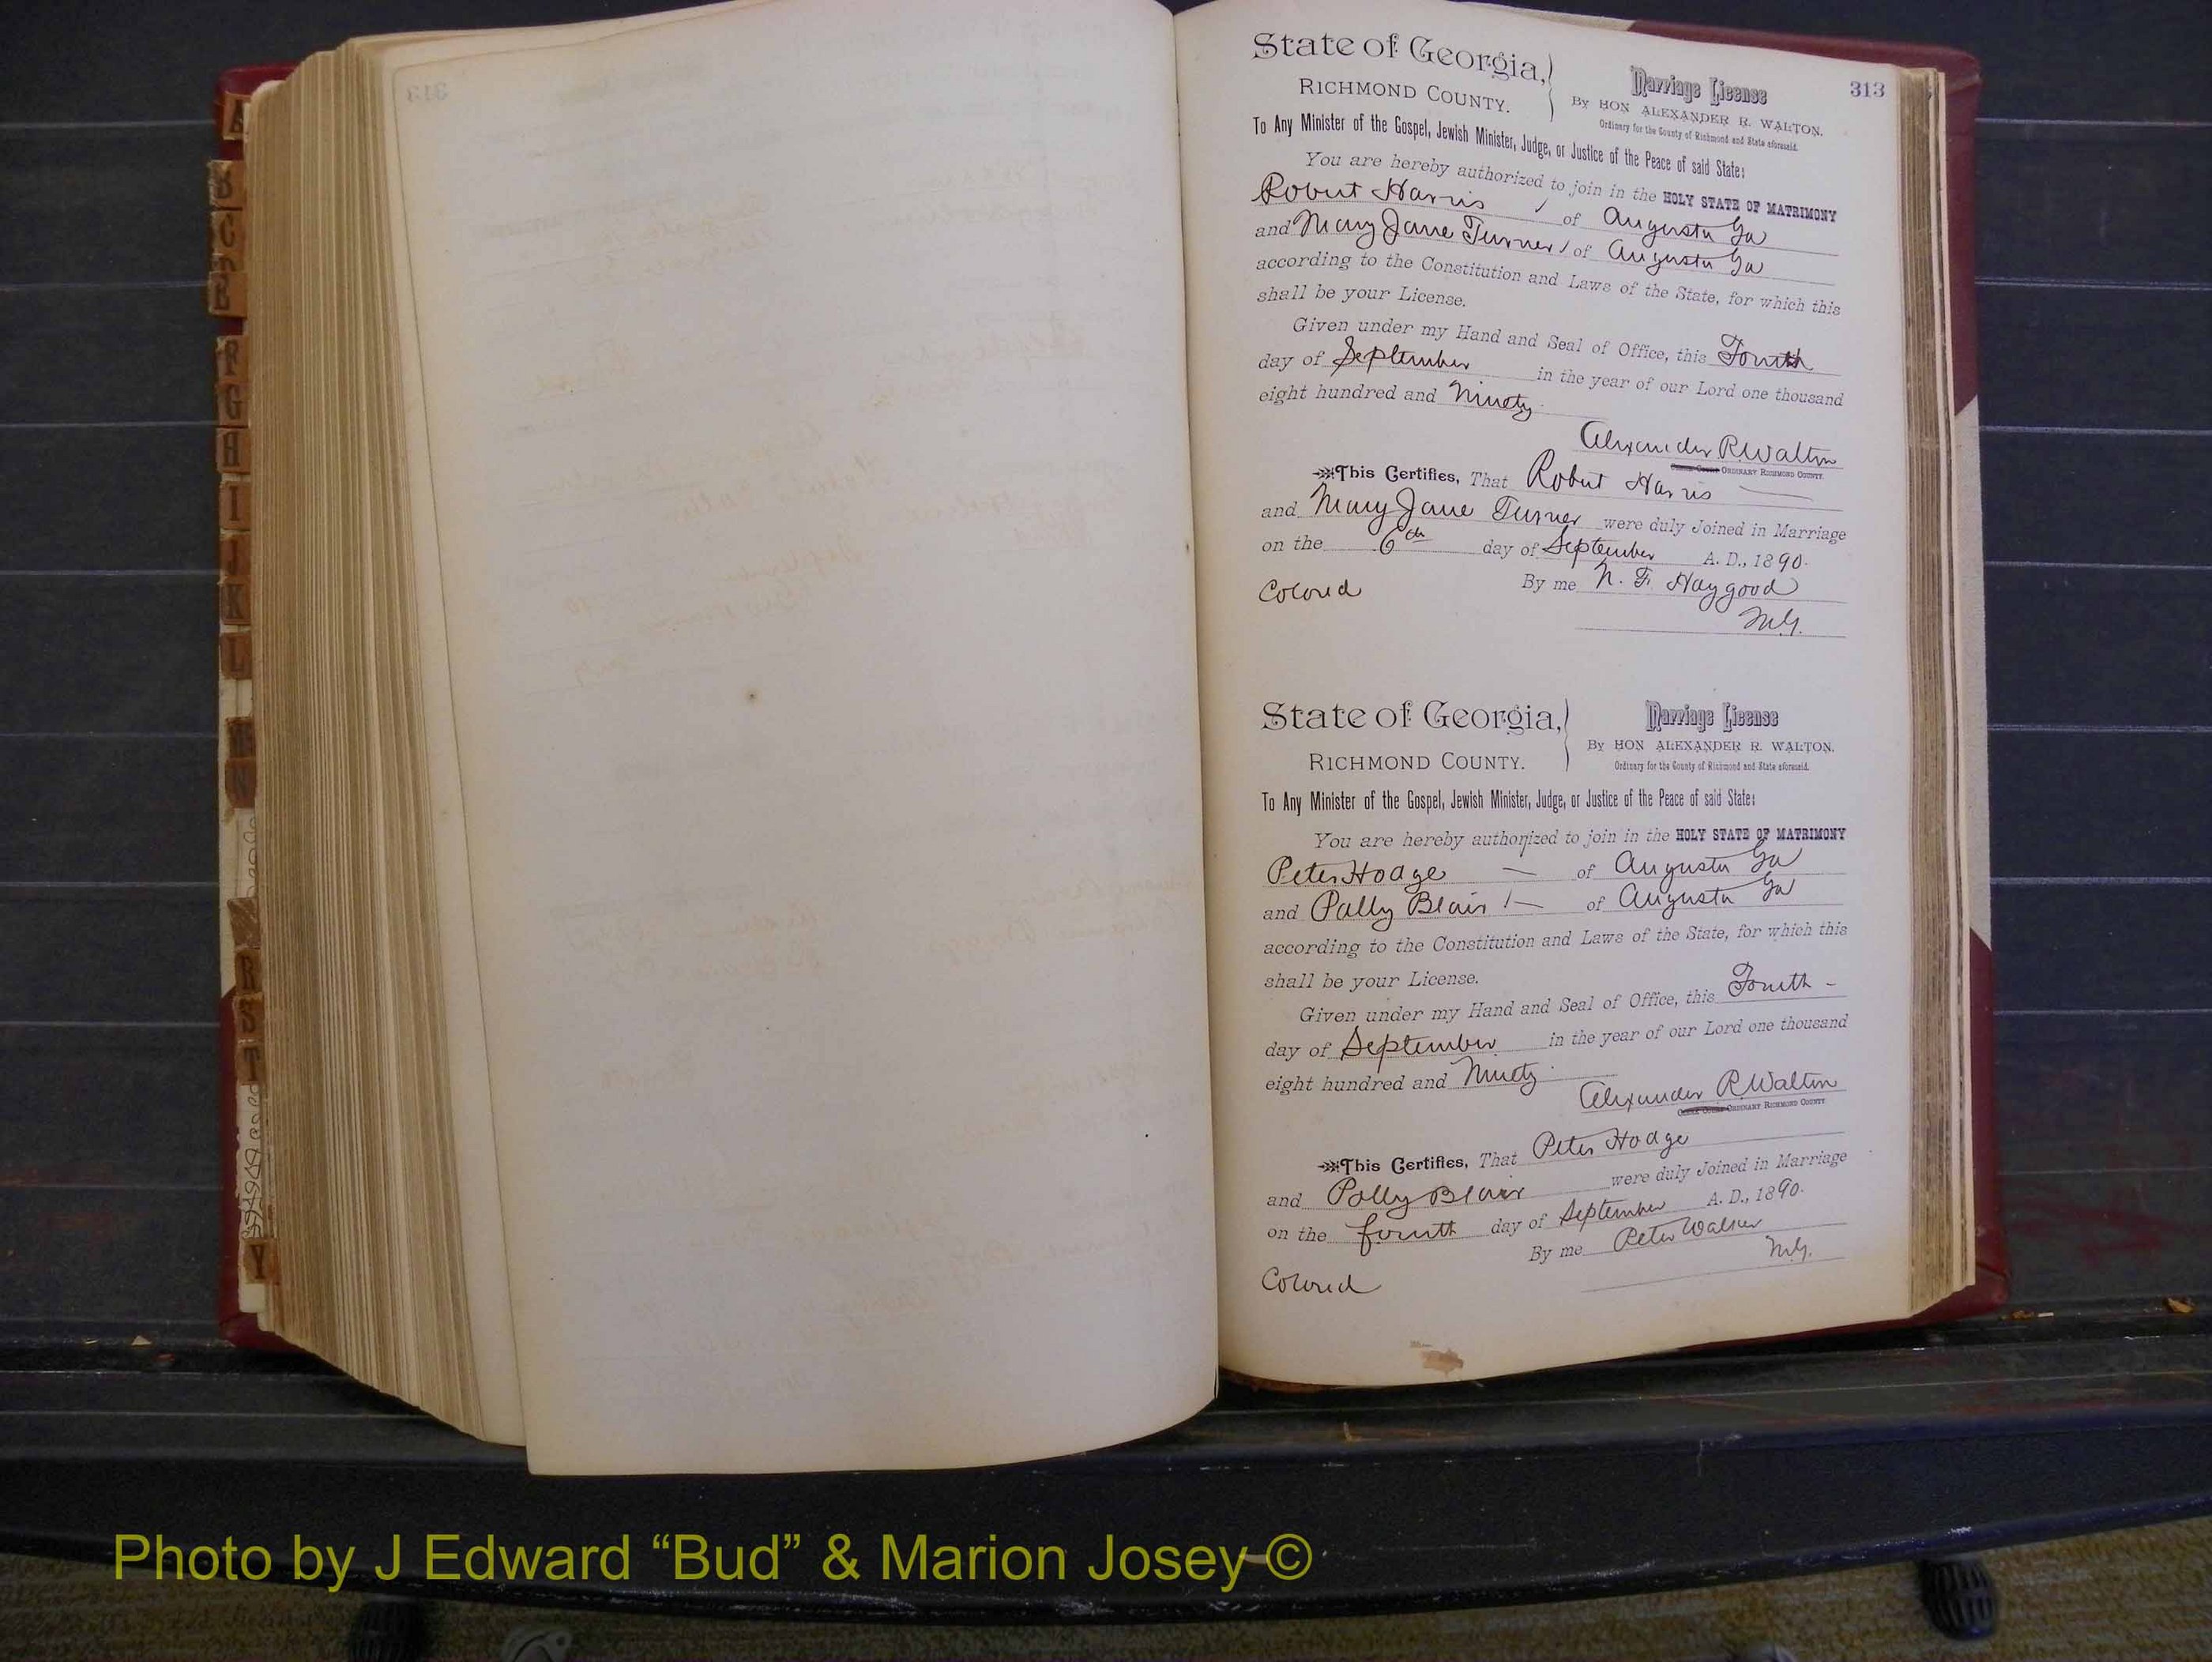 313
State of Georgia,
RICHMOND COUNTY.
Marriage License
By HON ALEXANDER R. WALTON.
Ordinary for the County of Richmond and State aforesaid.
To Any Minister of the Gospel, Jewish Minister, Judge, or Justice of the Peace of said State:
You are hereby authorized to join in the HOLY STATE OF MATRIMONY
Robert Harris of Augusta Ga
and Mary Jane Turner of Augusta Ga
according to the Constitution and Laws of the State, for which this
shall be your License.
Given under my Hand and Seal of Office, this Fourth
day of September in the year of our Lord one thousand
eight hundred and Ninety
Alexander R Walton
ORDINARY RICHMOND COUNTY.
This Certifies, That Robert Harris
and Mary Jane Turner were duly Joined in Marriage
on the 6th day of September A. D., 1890.
Colored By me N. F. Haygood
M.G.
State of Georgia,
RICHMOND COUNTY.
Marriage License
By HON ALEXANDER R. WALTON.
Ordinary for the County of Richmond and State aforesaid.
To Any Minister of the Gospel, Jewish Minister, Judge, or Justice of the Peace of said State:
You are hereby authorized to join in the HOLY STATE OF MATRIMONY
Peter Hodge — of Augusta Ga
and Polly Blair — of Augusta Ga
according to the Constitution and Laws of the State, for which this
shall be your License.
Given under my Hand and Seal of Office, this Fourth -
day of September in the year of our Lord one thousand
eight hundred and Ninety
Alexander R Walton
ORDINARY RICHMOND COUNTY
This Certifies, That Peter Hodge
and Polly Blair were duly Joined in Marriage
on the fourth day of September A. D., 1890.
By me Peter Walker
M.G.
Colored
A
B
C
D
E
F
G
H
I
J
K
L
M
N
R
S
T
Y
Photo by J Edward “Bud” & Marion Josey ©